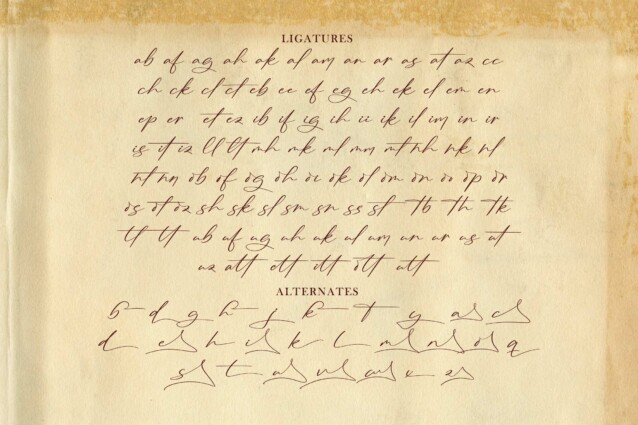 LIGATURES
ab af ag ah ak al am an ar as at az cc
ch ck cl ct eb ee ef eg eh ek el em en
ep er et ez ib if ig ih ii ik il im in ir
is it iz ll lt mh mk ml mm mt nh nk nl
nt nn ob of og oh oi ok ol om on oo op or
os ot oz sh sk sl sm sn ss st th Th Tk
tl tt ub uf ug uh uk ul um un ur us ut
uz att ett itt ott utt
ALTERNATES
b d g h j k t y a c
d e h i k l m n o q
s t u v w x z